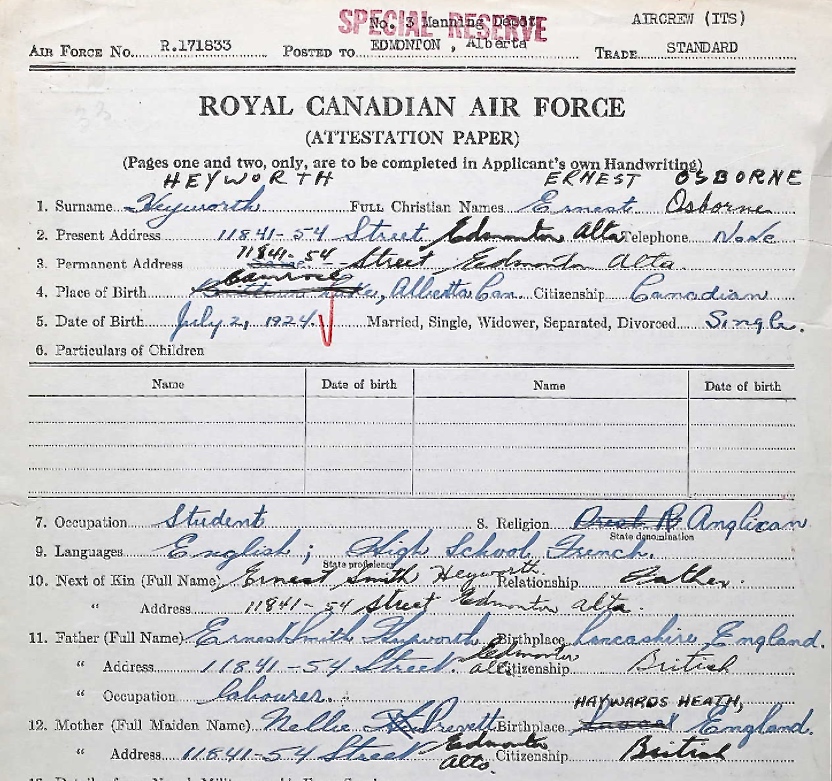 SPECIAL RESERVE
No. 3 Manning Depot AIRCREW (ITS)
AIR FORCE No. R.171833 POSTED TO EDMONTON , Alberta TRADE STANDARD
ROYAL CANADIAN AIR FORCE
(ATTESTATION PAPER)
(Pages one and two, only, are to be completed in Applicant's own Handwriting)
HEYWORTH ERNEST OSBORNE
1. Surname Heyworth FULL Christian Names Ernest Osborne
2. Present Address 11841-54 Street Edmonton Alta Telephone None
11841-54
3. Permanent Address Street Edmonton Alta.
Camrose
4. Place of Birth Alberta Can. Citizenship Canadian
5. Date of Birth July 2, 1924. Married, Single, Widower, Separated, Divorced Single.
6. Particulars of Children
Name Date of birth Name Date of birth
7. Occupation Student 8. Religion Anglican
State denomination
9. Languages English; High School French.
State proficiency
10. Next of Kin (Full Name) Ernest Smith Heyworth Relationship Father.
" Address 11841-54 Street Edmonton Alta.
11. Father (Full Name) Ernest Smith Heyworth Birthplace Lancashire, England.
" Address 11841-54 Street. Edmonton Alta. Citizenship British
" Occupation Labourer.
HAYWARDS HEATH,
12. Mother (Full Maiden Name) Nellie Prevett Birthplace England.
" Address 11841-54 Street Edmonton Alta. Citizenship British